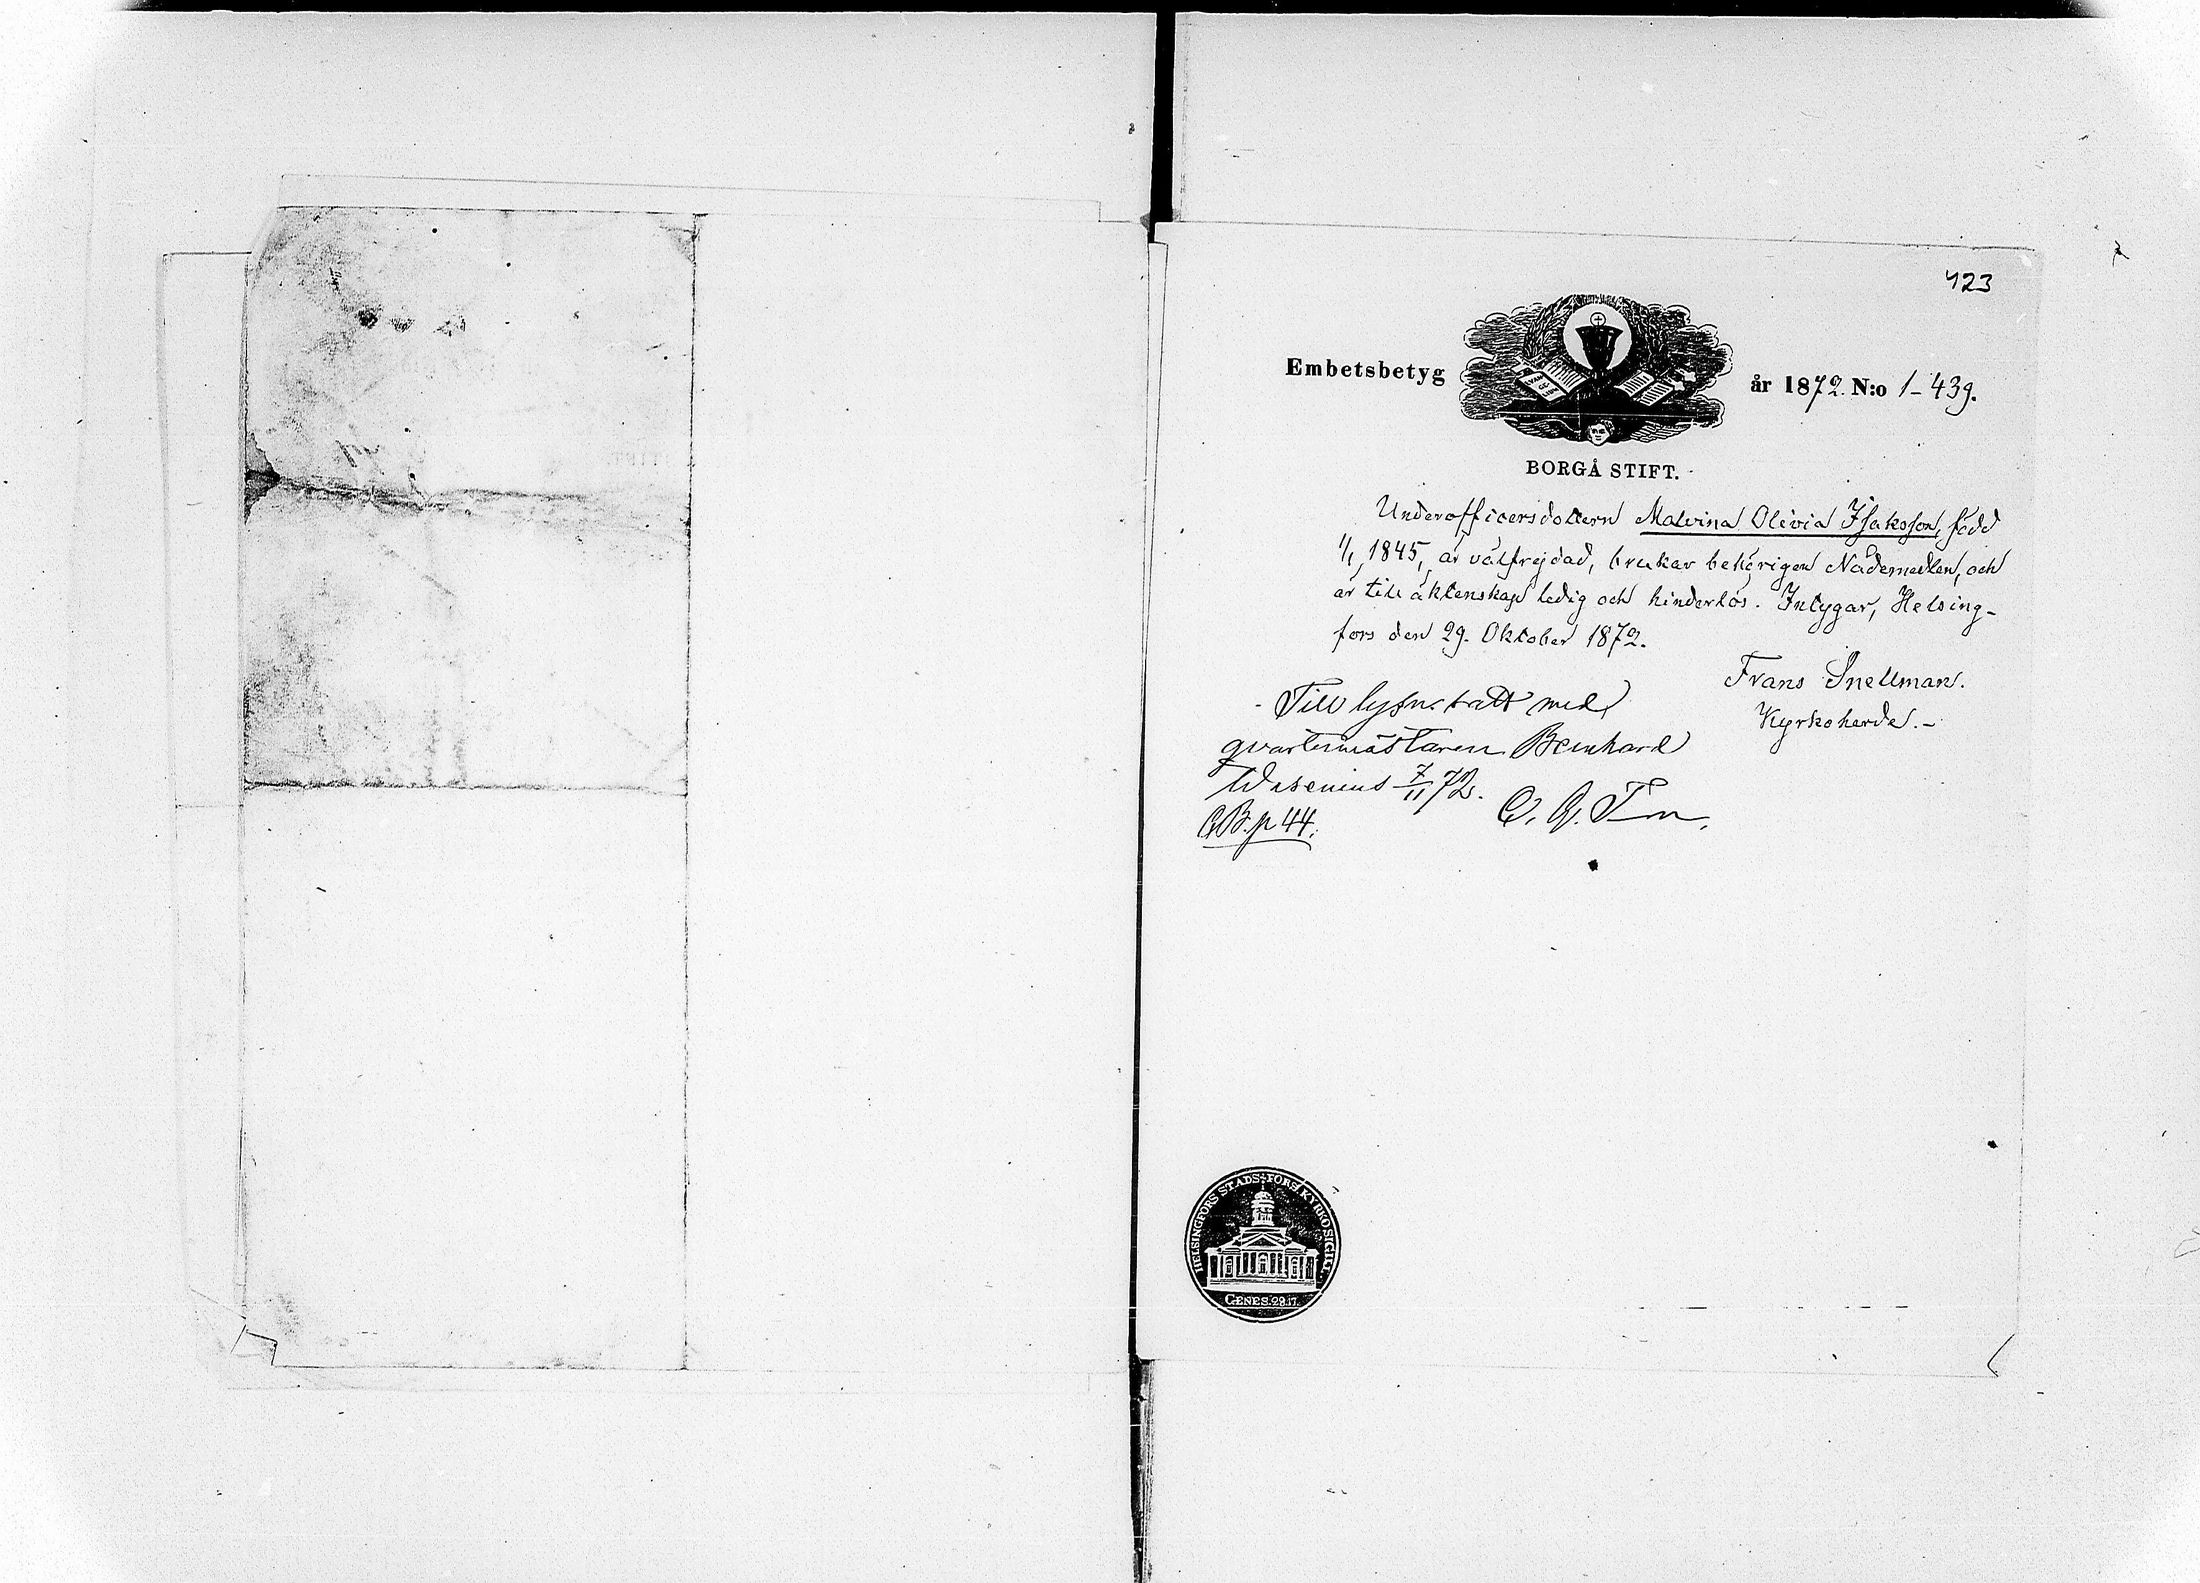 423
Embetsbetyg
år 1872. N:o 1-439.
BORGÅ STIFT.
Underofficersdottern Malvina Olivia Isakson, född
1/1 1845, är välfrejdad, brukar behörigen Nådemedlen, och
är till äktenskap ledig och hinderlös. Intygar, Helsing-
fors den 29. Oktober 1872.
Frans Snellman.
Kyrkoherde.-
Till lysn. tatt med
qvartermästaren Bernhard
Wasenius 7/11 72.
p 44.
HELSINGFORS STADSFÖRS. KYRKO SIGILL.
GENES. 28.17.